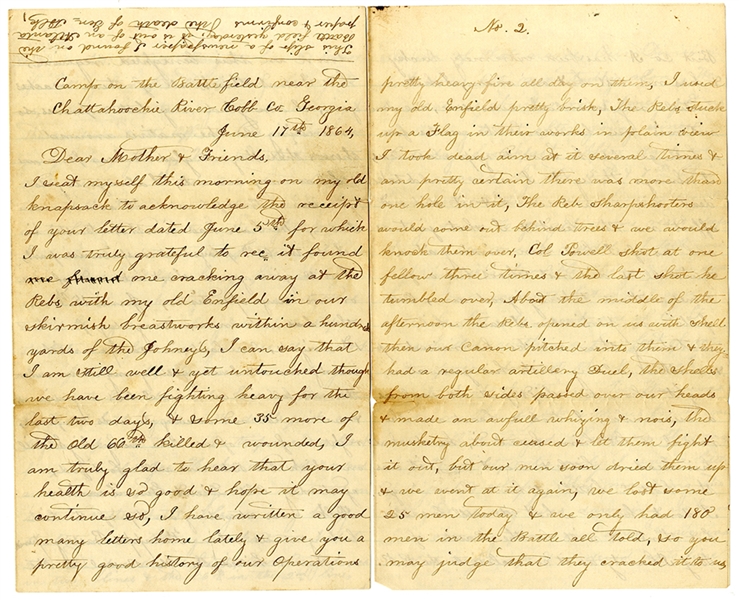 This slip of a newspaper I found on the
Battle field yesterday, it is out of an Atlanta
paper & confirms the death of Gen. Polk,
Camp on the Battlefield near the
Chattahoochie River Cobb Co, Georgia
June 17th 1864,
Dear Mother & Friends,
I seat myself this morning on my old
knapsack to acknowledge the receipt
of your letter dated June 5th for which
I was truly grateful to rec, it found
me cracking away at the
Rebs, with my old Enfield in our
skirmish breastworks within a hundred
yards of the Johney's, I can say that
I am still well & yet untouched though
we have been fighting heavy for the
last two days, & some 35 more of
the Old 60th killed & wounded, I
am truly glad to hear that your
health is so good & hope it may
continue so, I have written a good
many letters home lately & give you a
pretty good history of our Operations
No. 2.
pretty heavy fire all day on them, I used
my old Enfield pretty brisk, The Rebs stuck
up a Flag in their works in plain view
I took dead aim at it several times &
am pretty certain there was more than
one hole in it, The Reb Sharpshorters
would come out behind trees & we would
knock them over, Col Powell shot at one
fellow three times & the last shot he
tumbled over, About the middle of the
afternoon the Rebs opened on us with Shell
then our Canon pitched into them & they
had a regular artillery Duel, the Shells
from both sides passed over our heads
& made an awfull whizing & nois, the
musketry about ceased & let them fight
it out, but our men soon dried them up
& we went at it again, we lost some
25 men today & we only had 180
men in the Battle all told, so you
may judge that they cracked it to us